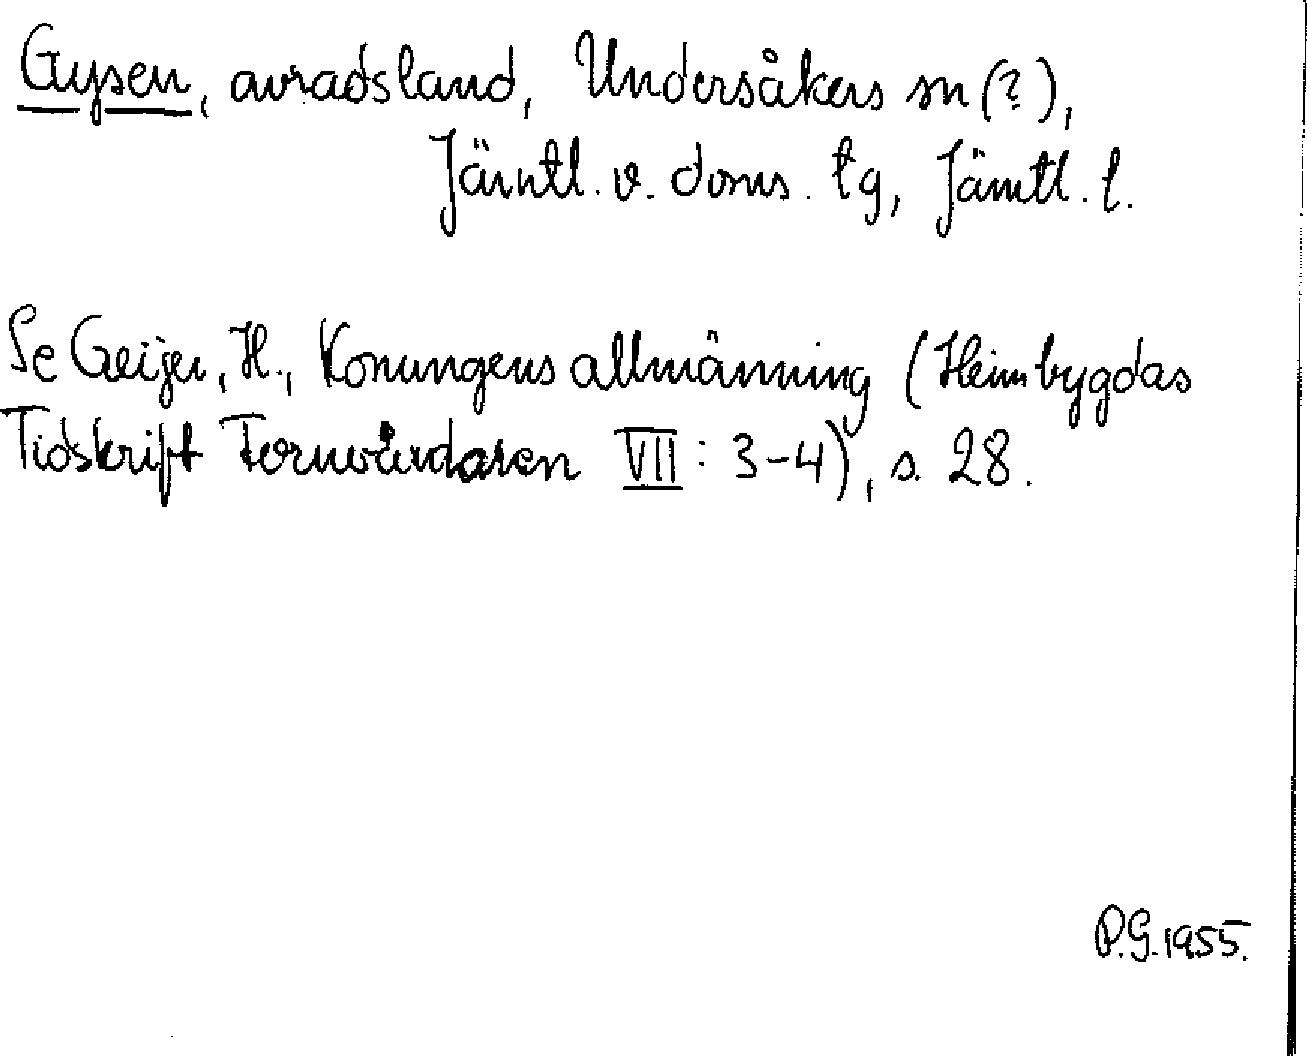 Gysen, avradsland, Undersåkers sn (?),
Jämtl. v. doms. tg, Jämtl. l.
Se Geijer, H., Konungens allmänning (Heimbygdas
Tidskrift Fornvårdaren VII : 3-4), s. 28.
P.G. 1955.